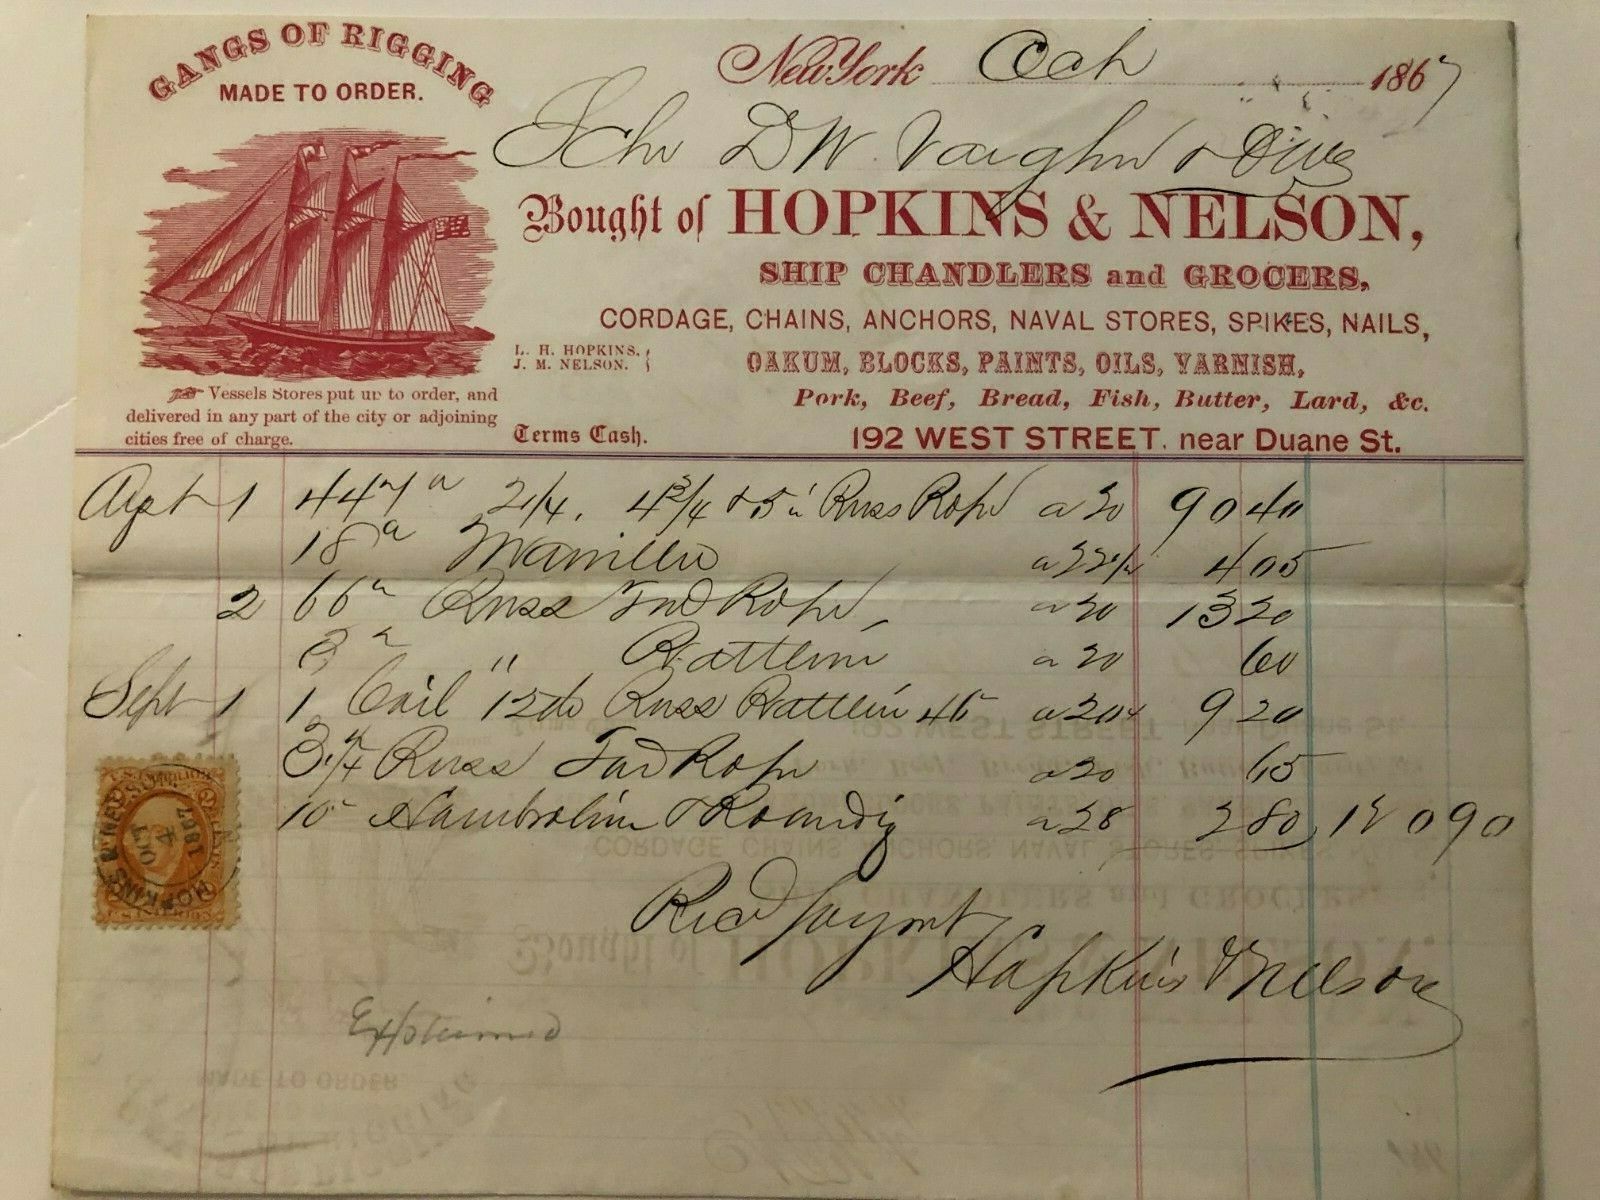 GANGS OF RIGGING
MADE TO ORDER.
New York Och 1867
Schr D W. Vaughn & Own
Bought of HOPKINS & NELSON,
SHIP CHANDLERS and GROCERS,
CORDAGE, CHAINS, ANCHORS, NAVAL STORES, SPIKES, NAILS,
L. H. HOPKINS.
J. M. NELSON.
OAKUM, BLOCKS, PAINTS, OILS, VARNISH,
Pork, Beef, Bread, Fish, Butter, Lard, &c.
Vessels Stores put up to order, and
delivered in any part of the city or adjoining
cities free of charge.
Terms Cash.
192 WEST STREET. near Duane St.
1 2 1/4. 4 3/4 & 5 in Russ Rope a 20 90 40
18 Manilla a 22 1/2 4 05
2 66 Russ Tard Rope a 20 13 20
3 " Rattlin a 20 60
Sept 1 1 Coil 12 Russ Rattlin 46 a 20 9 20
3 1/4 Russ Tard Rope a 20 65
10 Hambrolin & Roundg a 28 2 80 120 90
U.S. INTER. REV.
HOPKINS & NELSON
OCT
4
1867
Recd Paymt
Hopkins & Nelson